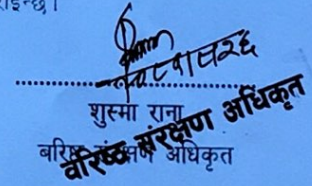 शुस्मा राना
बरिष्ठ संरक्षण अधिकृत
वरिष्ठ संरक्षण अधिकृत